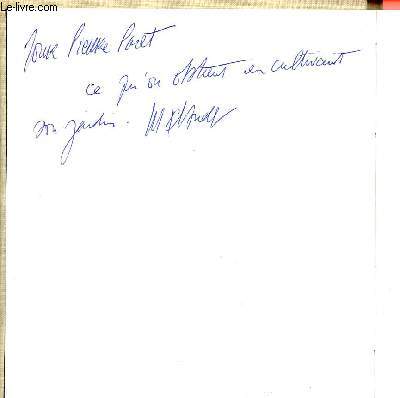 Le-livre.com
Pour Pierre Poret
ce qu'on obtient en cultivant
son jardin.